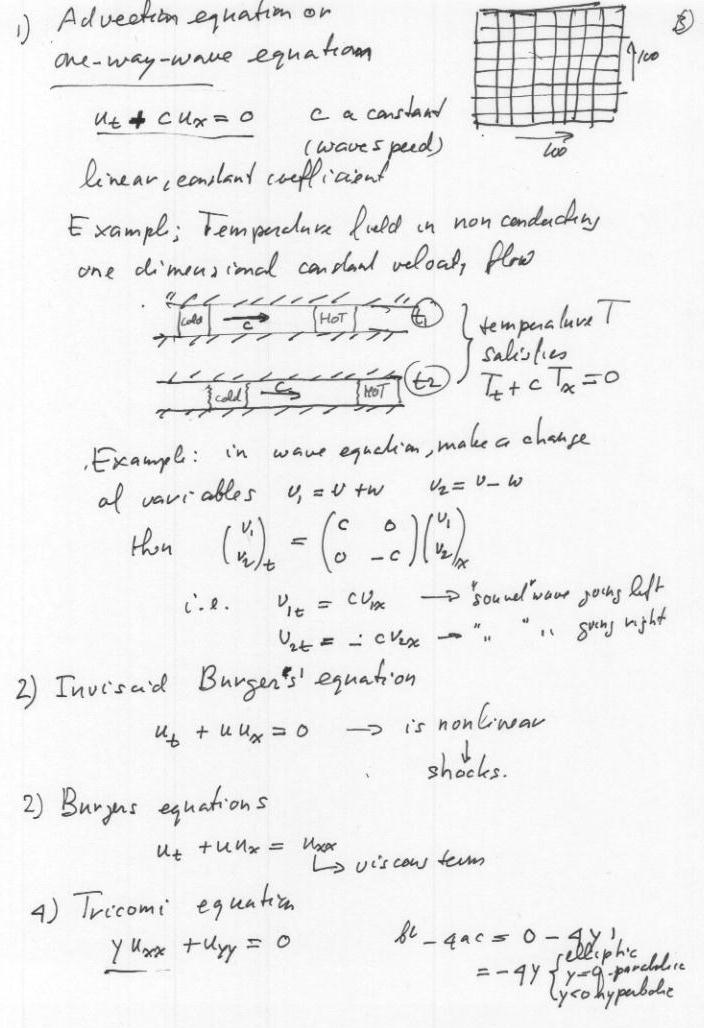 1) Advection equation or
one-way-wave equation
u_t + c u_x = 0 c a constant
(wave speed)
linear, constant coefficient
100
100
3
Example; Temperature field in non conducting
one dimensional constant velocity flow
cold c HOT t1
cold c HOT t2
temperature T
satisfies
T_t + c T_x = 0
Example: in wave equation, make a change
of variables v_1 = v + w v_2 = v - w
then (v_1 v_2)_t = (c 0 0 -c) (v_1 v_2)_x
i.e. v_1t = c v_1x → "sound" wave going left
v_2t = - c v_2x → " " " going right
2) Inviscid Burger's' equation
u_t + u u_x = 0 → is nonlinear
↓
shocks.
2) Burgers equations
u_t + u u_x = u_xx
↳ viscous term
4) Tricomi equation
y u_xx + u_yy = 0
- 4ac = 0 - 4y
= -4y { elliptic
y=0 parabolic
y<0 hyperbolic